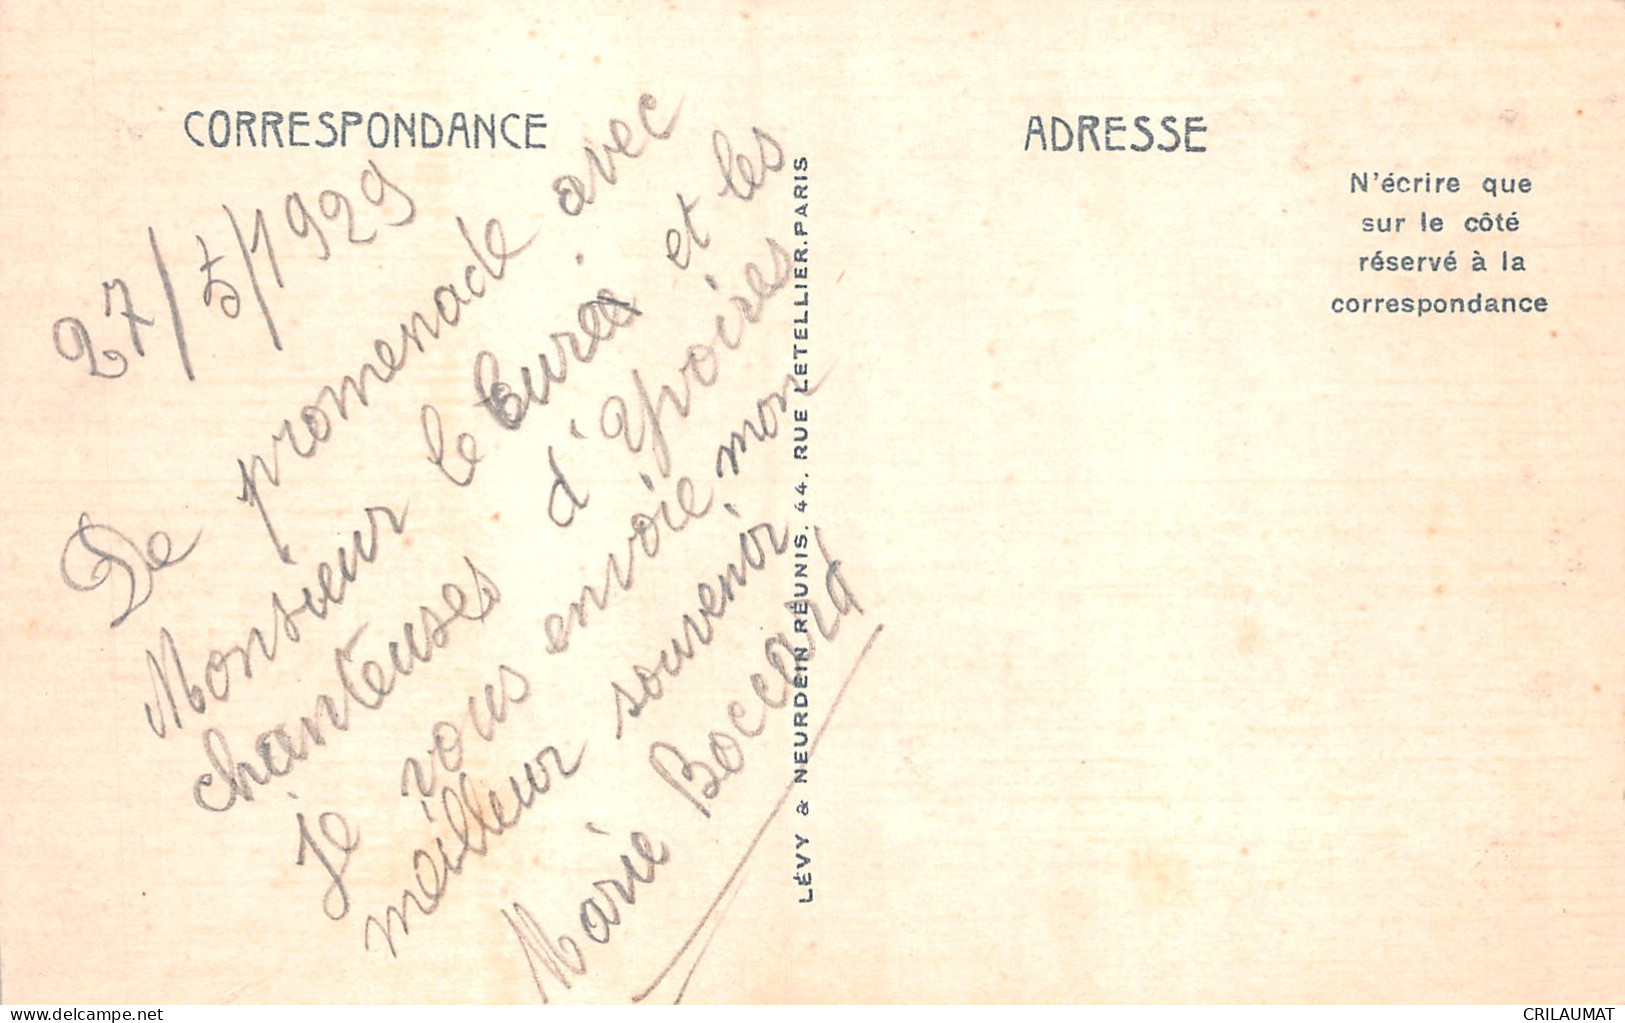 CORRESPONDANCE
27/5/1929
De promenade avec
Monsieur le Curé et les
chanteuses d'Yvoires
Je vous envoie mon
meilleur souvenir
Marie Boccard
LÉVY & NEURDEIN RÉUNIS. 44. RUE LETELLIER. PARIS
ADRESSE
N'écrire que
sur le côté
réservé à la
correspondance
www.delcampe.net
CRILAUMAT